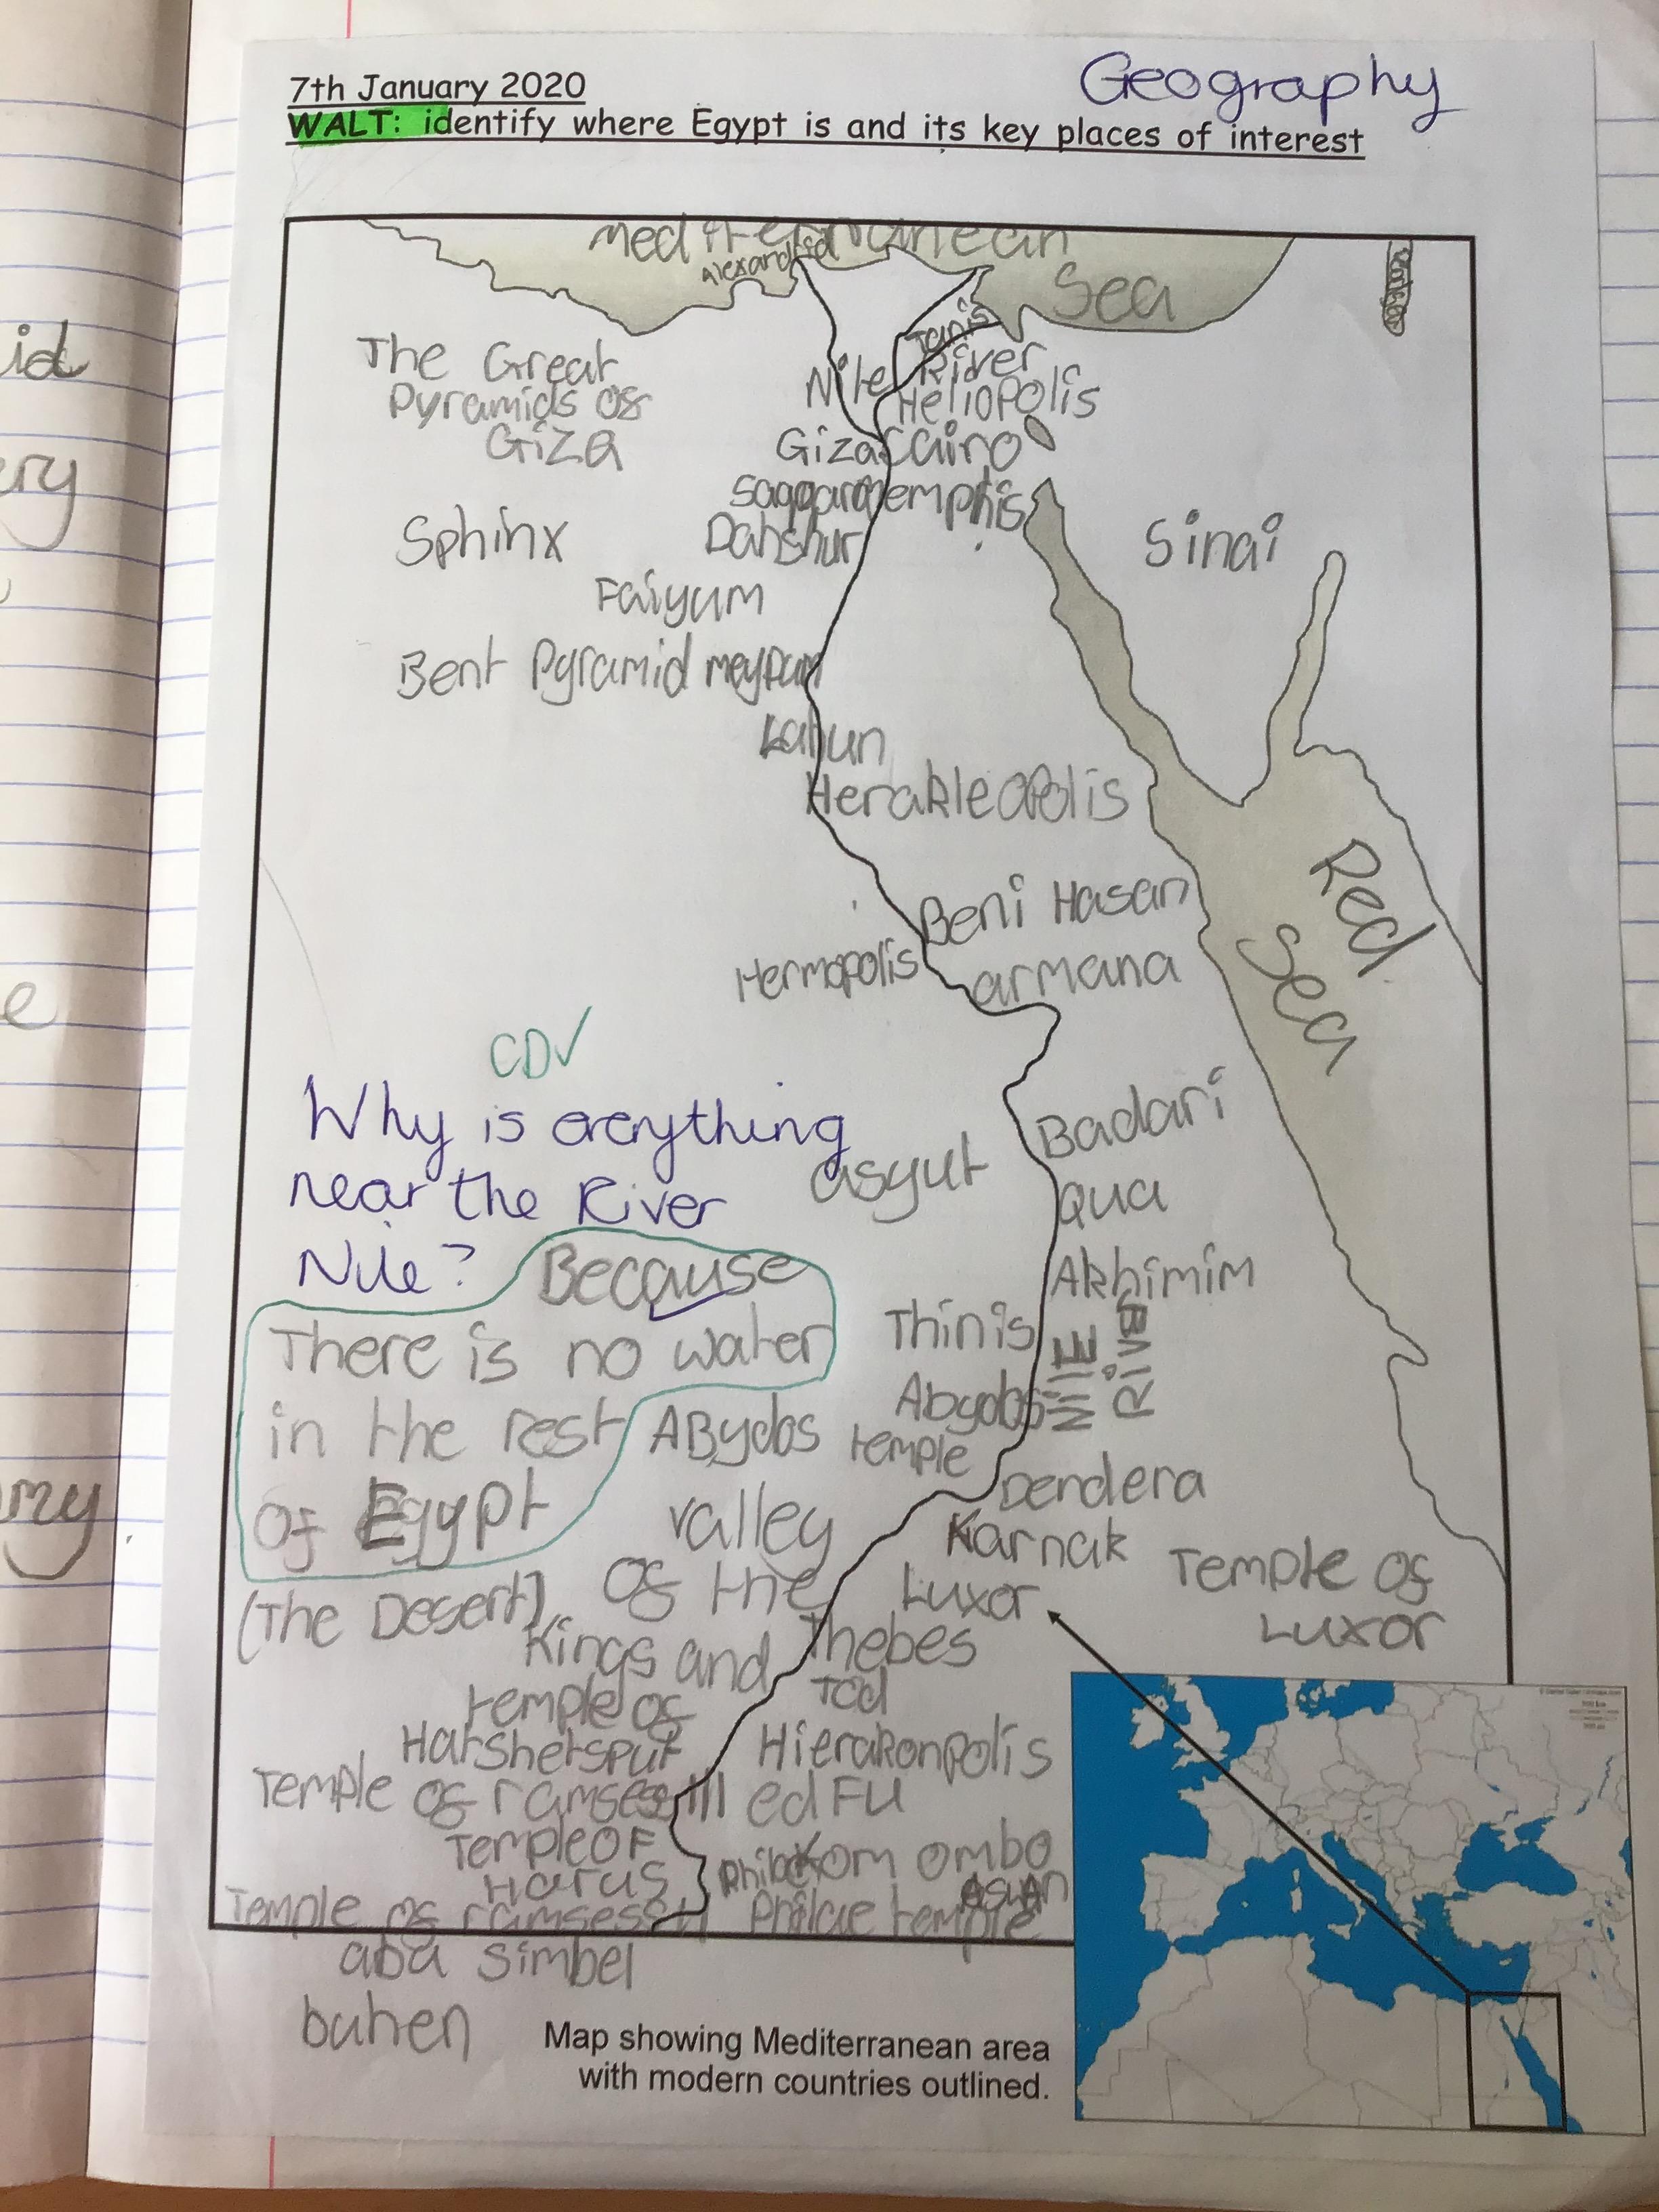 Geography
7th January 2020
WALT: identify where Egypt is and its key places of interest
Mediterranean
Alexandria
Sea
Tanis
The Great
Pyramids of
Giza
Nile River
Heliopolis
Giza Cairo
Saqqara Memphis
Sphinx
Dahshur
Sinai
Faiyum
Bent Pyramid meydum
Lahun
Herakleopolis
Red
Sea
Beni Hasan
Hermopolis
armana
CD✓
Why is everything
near the River
Nile?
Because
There is no water
in the rest
of Egypt
(The Desert)
Badari
asyut
Qua
Akhimim
Thinis
NilE
RivER
Abydos
ABydos temple
Dendera
Karnak
Luxor
Temple of
Luxor
valley
of the
Kings and
temple of
Hatshetsput
Thebes
Tod
Hierakonpolis
Temple of ramses III
edFu
Temple OF
Horus
Philae
Kom ombo
Aswan
Temple of ramsess II
Philae temple
aba simbel
buhen
Map showing Mediterranean area
with modern countries outlined.
id
ery
e
my